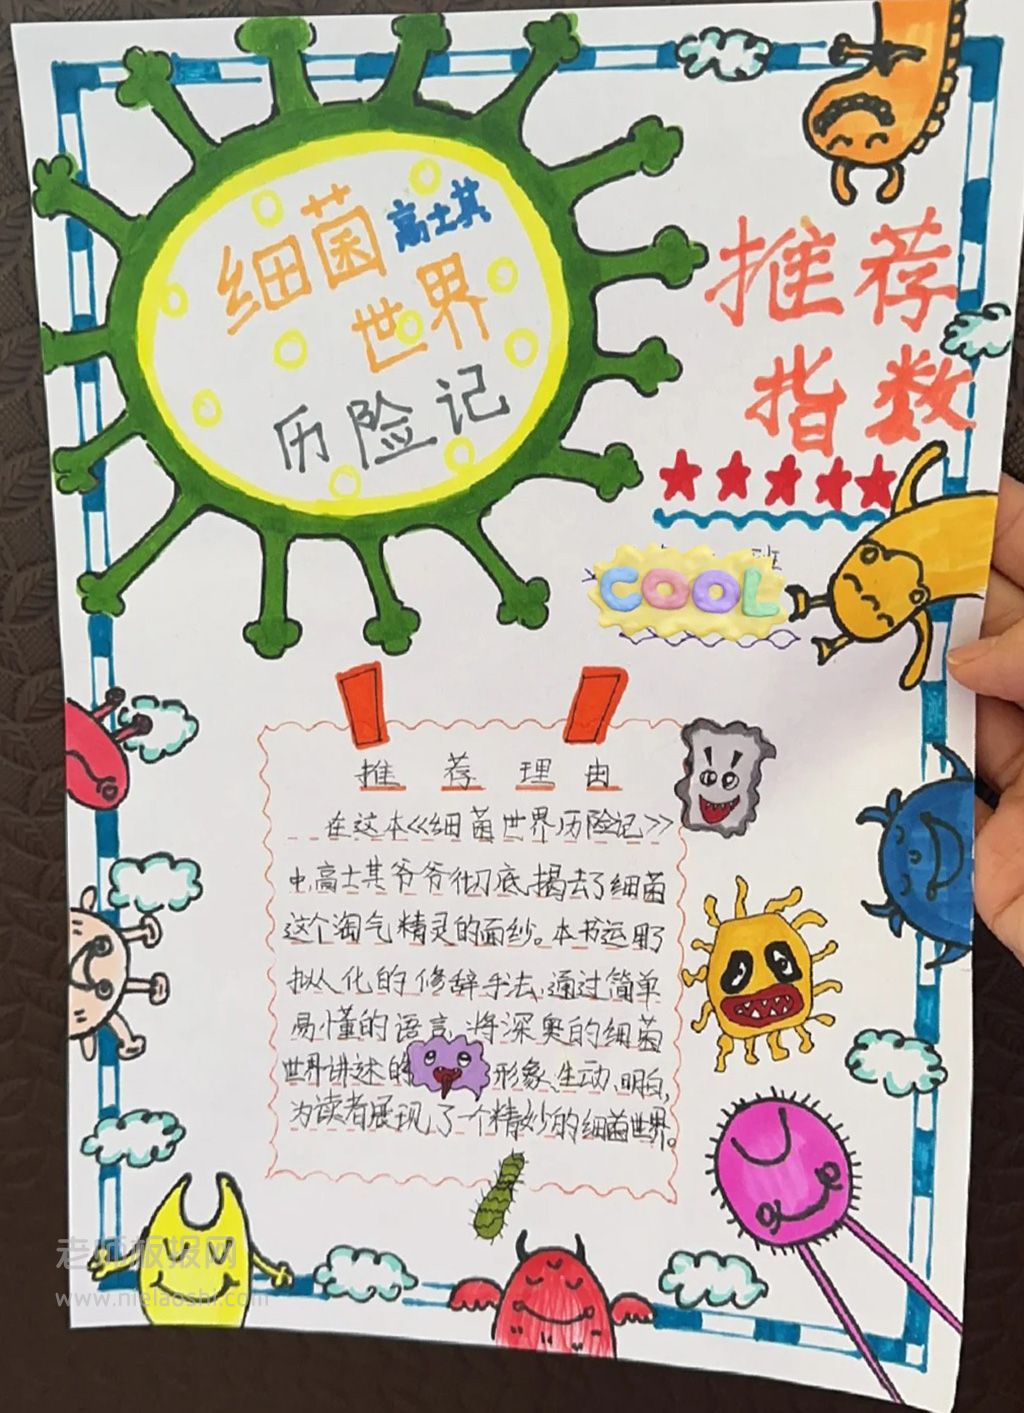 细菌 高士其
世界
历险记
推荐
指数
班
COOL
推荐理由
在这本《细菌世界历险记》
中,高士其爷爷彻底揭去了细菌
这个淘气精灵的面纱。本书运用了
拟人化的修辞手法,通过简单
易懂的语言,将深奥的细菌
世界讲述的 形象、生动、明白,
为读者展现了一个精妙的细菌世界。
老师板报网
www.nielaoshi.com